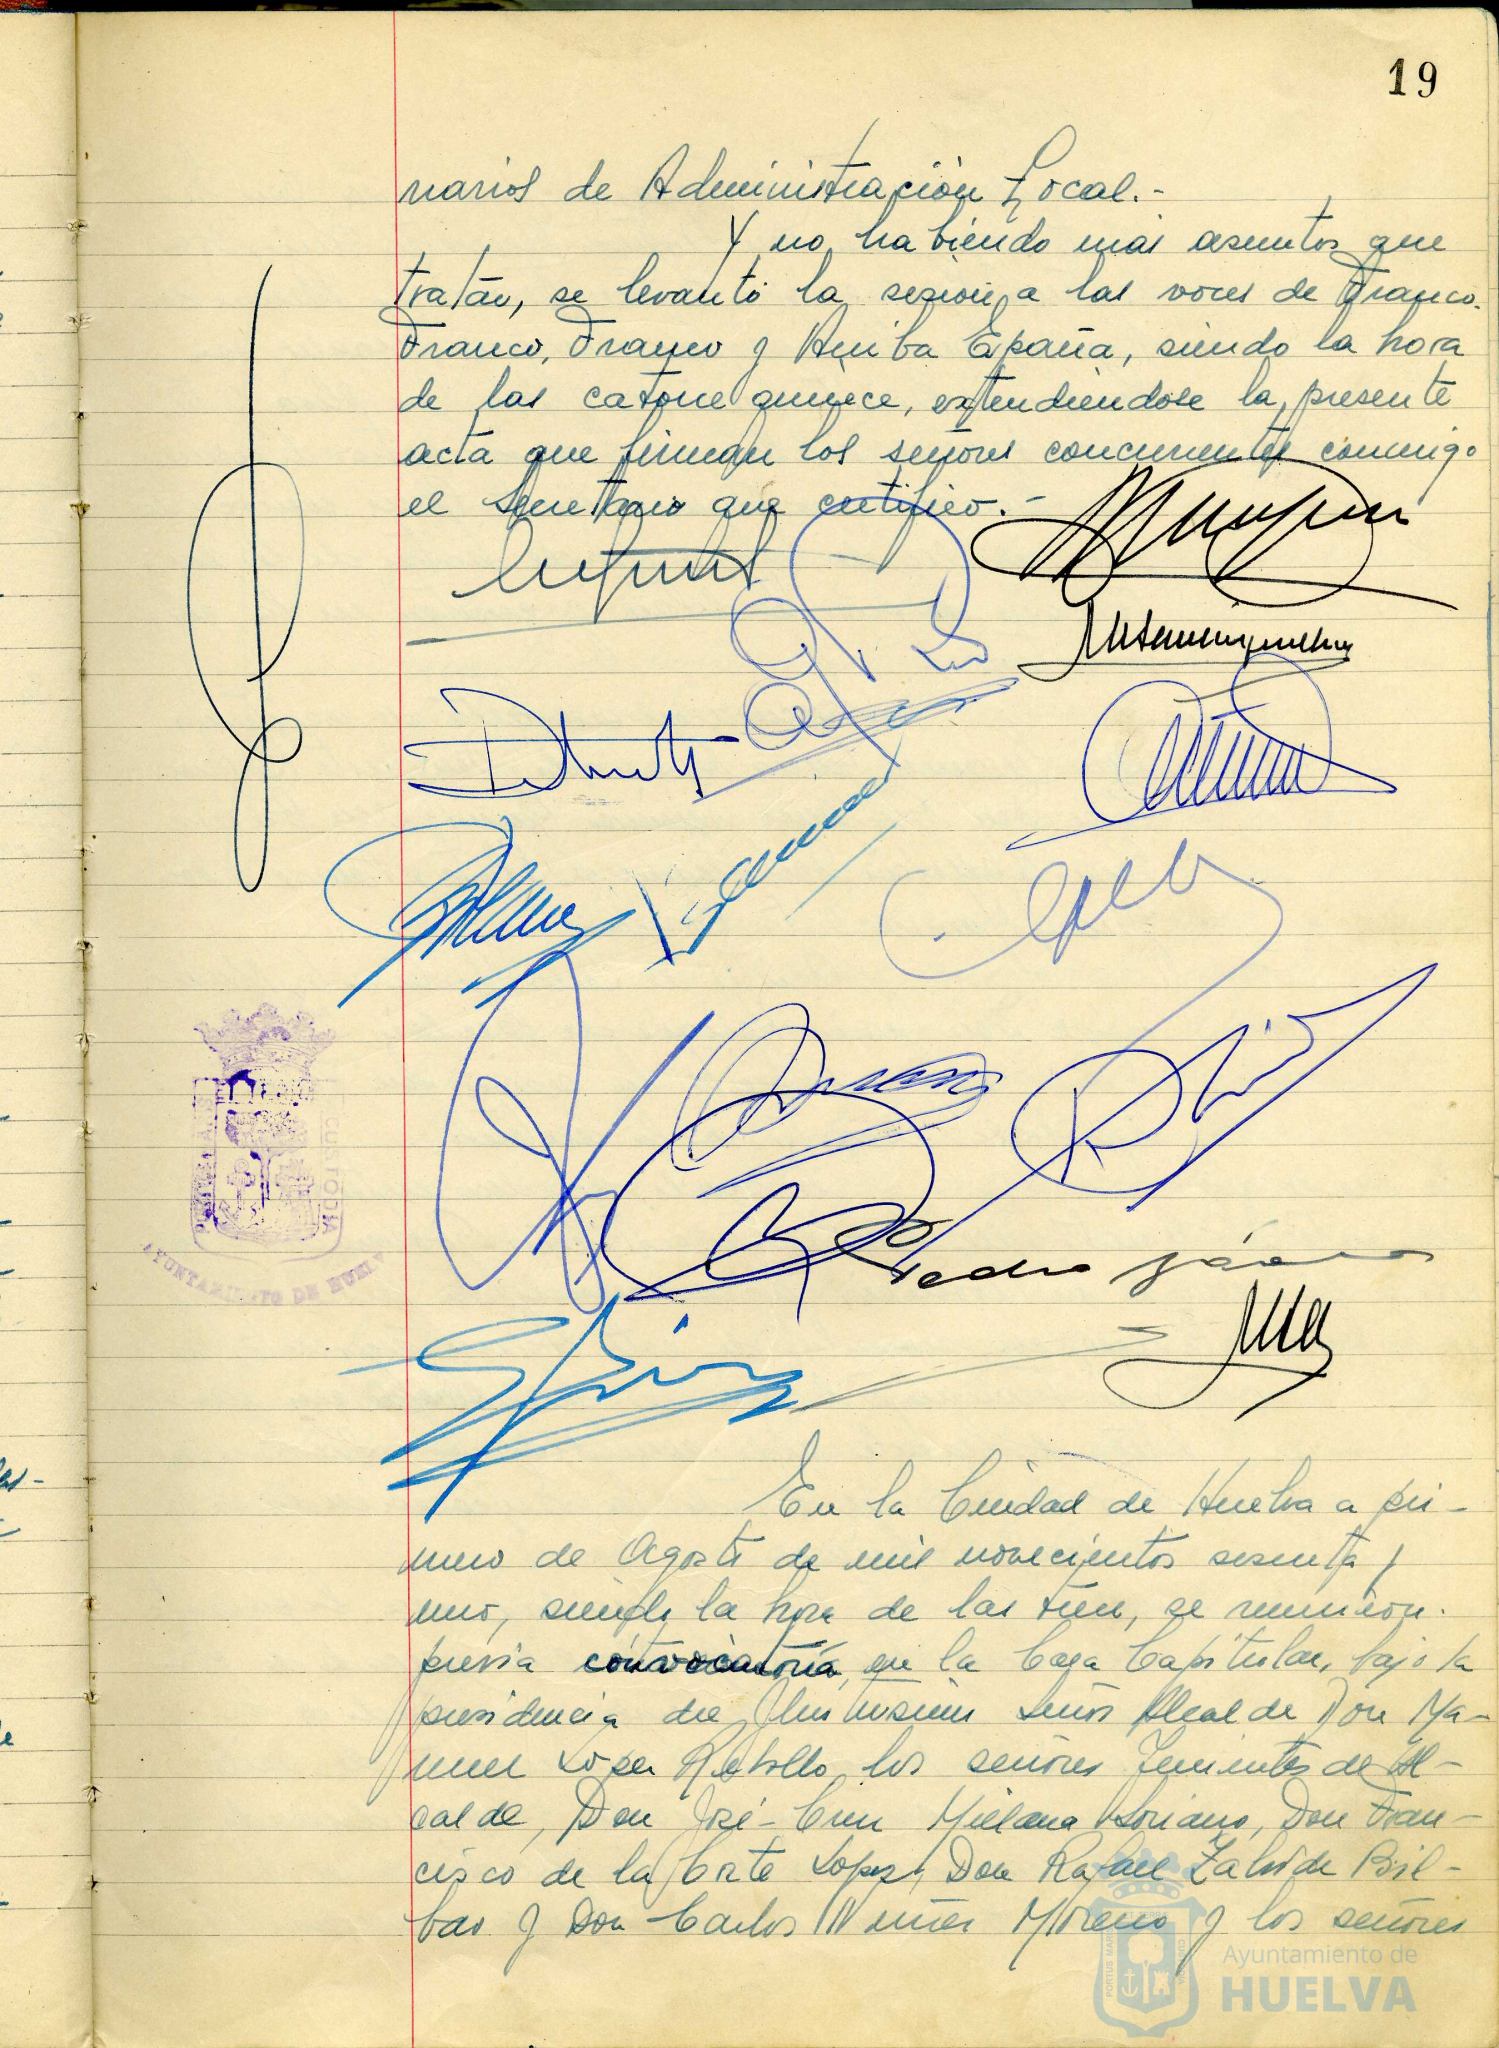 19
narios de Administración Local.-
Y no habiendo más asuntos que
tratar, se levantó la sesión a las voces de Franco.
Franco, Franco y Arriba España, siendo la hora
de las catorce quince, extendiéndose la presente
acta que firman los señores concurrentes conmigo
el Secretario que certifico.-
Pedro
AYUNTAMIENTO DE HUELVA
En la Ciudad de Huelva a pri-
mero de Agosto de mil novecientos sesenta y
uno, siendo la hora de las trece, se reunieron.
previa convocatoria, en la Casa Capitular, bajo la
presidencia del Ilustrísimo Señor Alcalde Don Ma-
nuel López Rebollo, los señores Tenientes de Al-
calde, Don José-Cruz Millana Soriano, Don Fran-
cisco de la Corte López, Don Rafael Zalvide Bil-
bao y Don Carlos Núñez Moreno y los señores
Ayuntamiento de
HUELVA